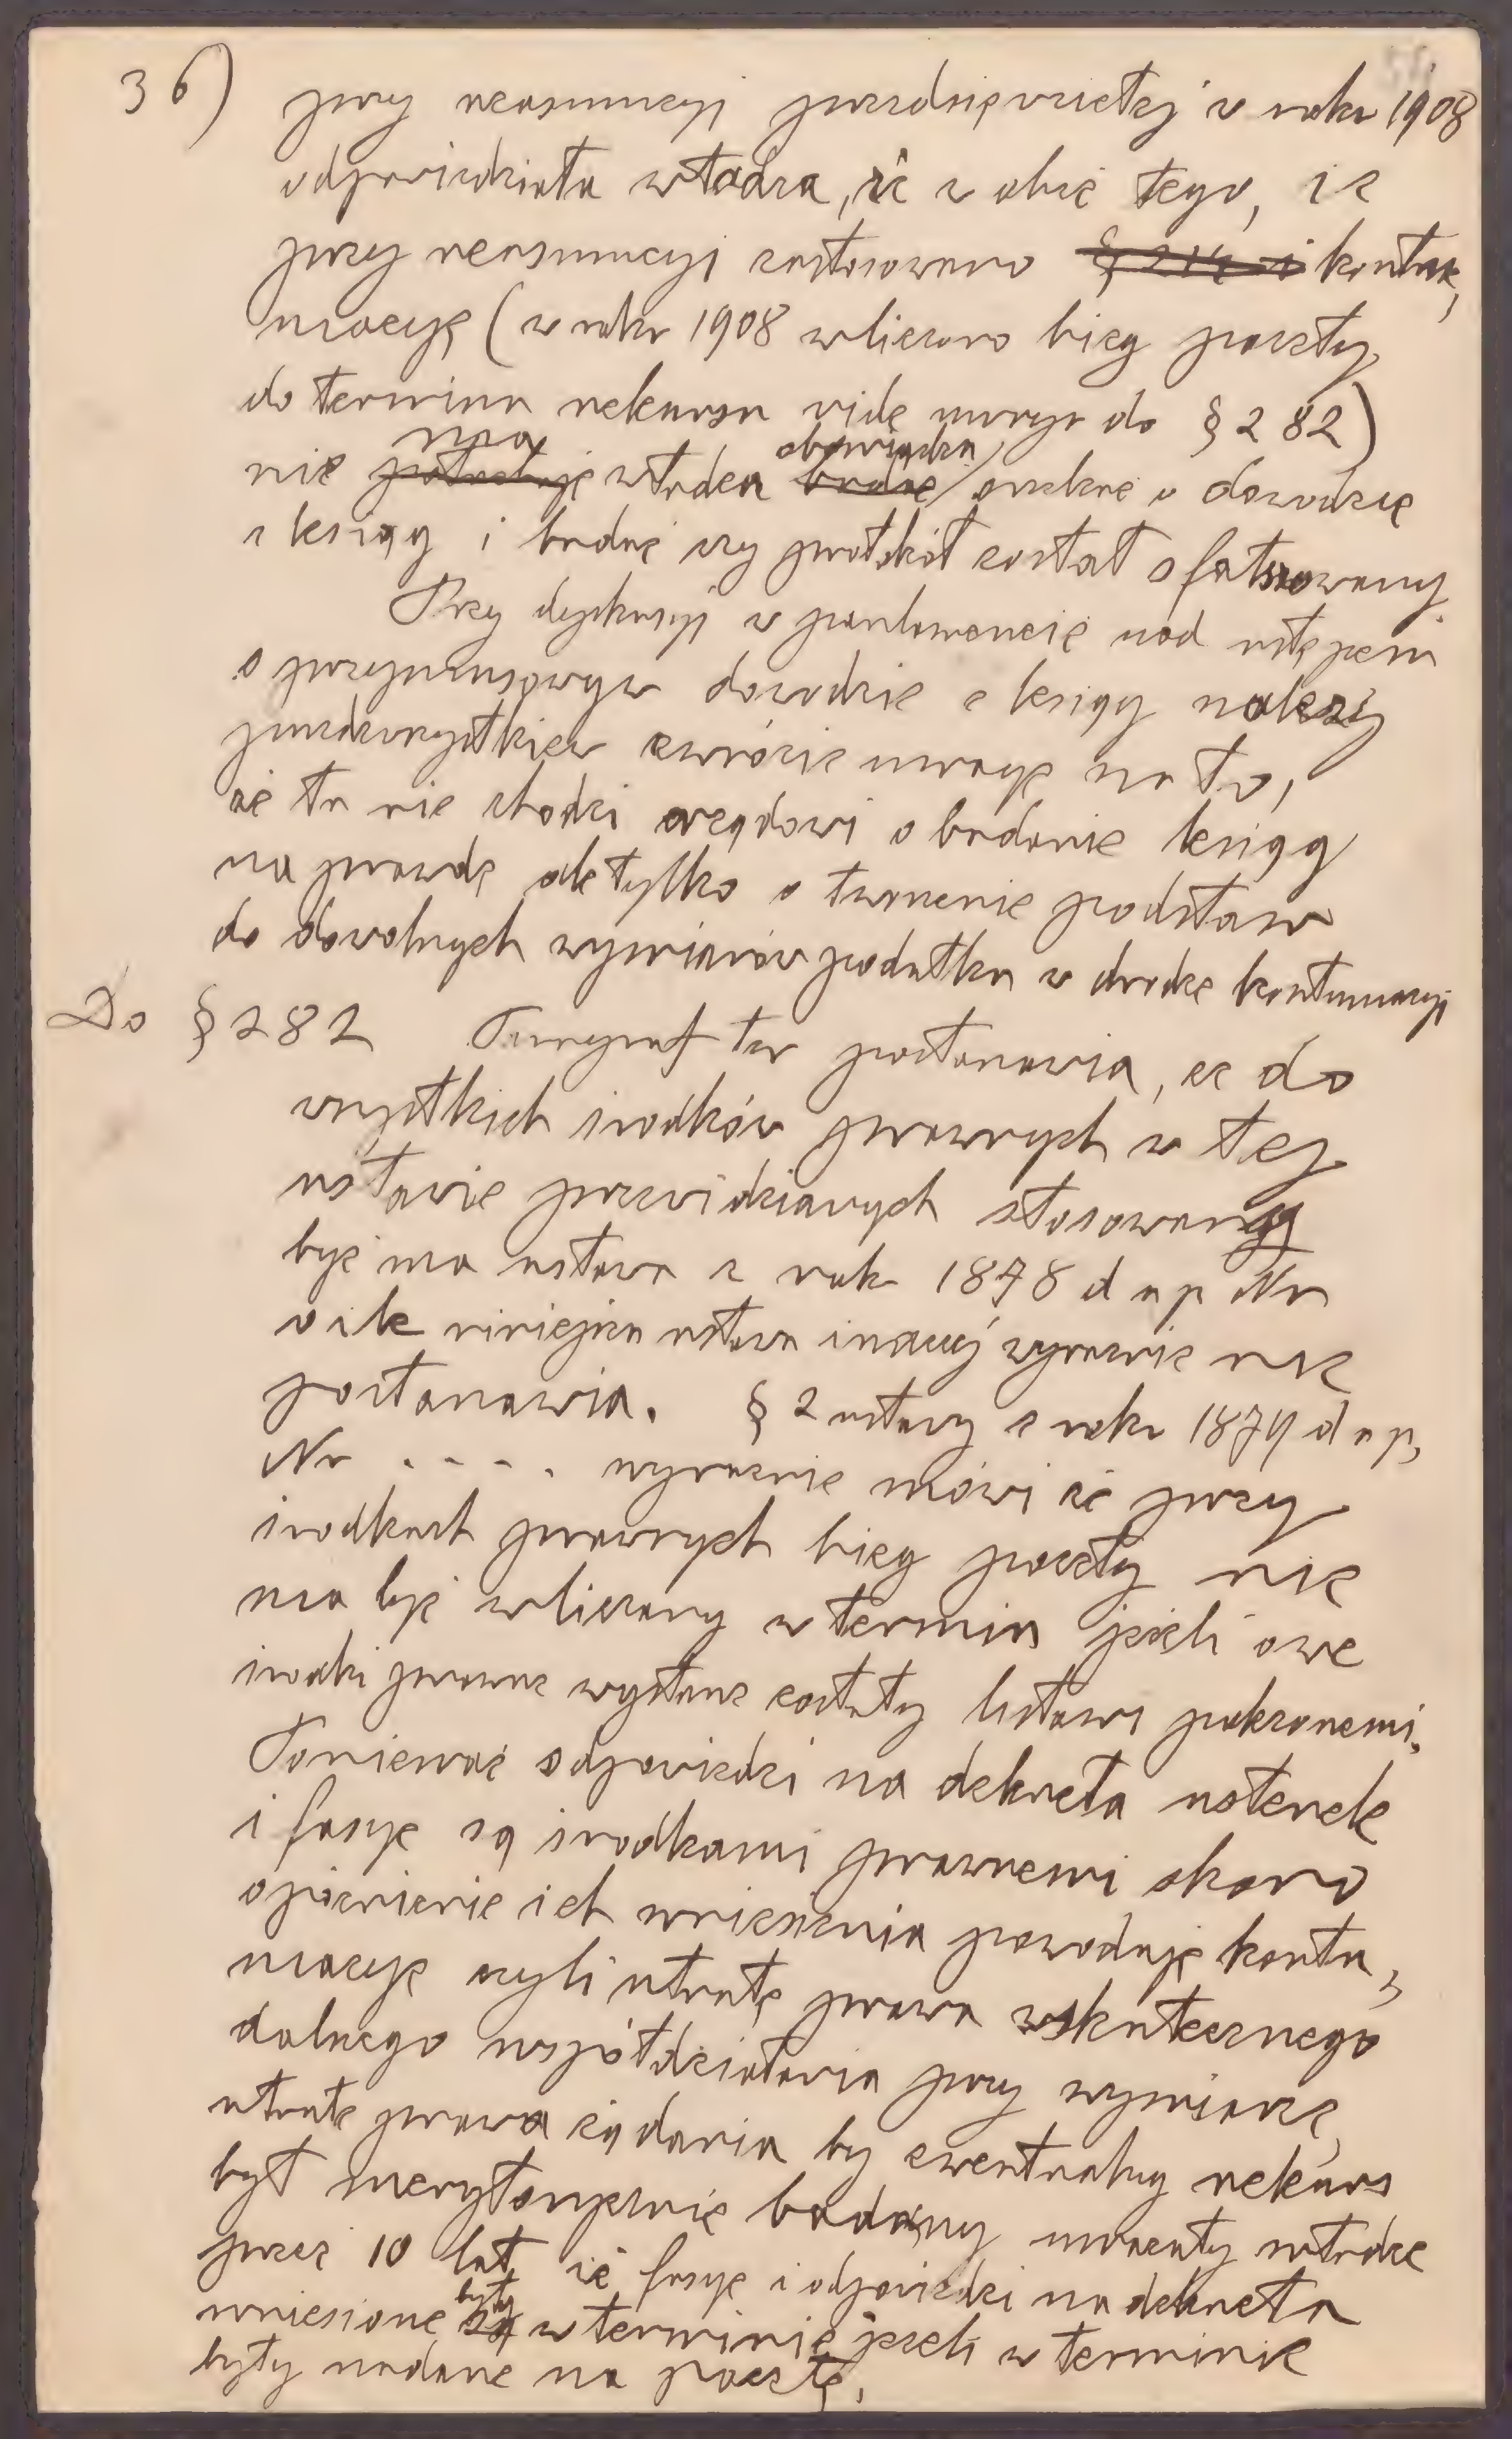 36) przy reasumcyi przedsięwziętej w roku 1908
odpowiedziała władza, iż z obec tego, iż
przy reasumcyi zastosowano § 214 i kontu,
macyę (w roku 1908 wliczono bieg poczty
do terminu rekursu vide uwagę do § 282)
nie potrzebuje ma władza badać obowiązku orzekać o dowodzie
z ksiąg i badać czy protokół został sfałszowany
Przy dyskusyi w parlamencie nad ustępem
o przymusowym dowodzie z ksiąg należy
przedewszystkiem zwrócić uwagę na to,
że tu nie chodzi urzędowi o badanie ksiąg
na prawdę ale tylko o tworzenie podstaw
do dowolnych wymiarów podatku w drodze kontumacyi
Do § 282 Paragraf ten postanawia, że do
wszystkich środków prawnych w tej
ustawie przewidzianych stosowaną
być ma ustawa z roku 1878 d u p Nr
o ile niniejsza ustawa inaczej wyraźnie nie
postanawia. § 2 ustawy z roku 1879 d u p,
Nr . . . . wyraźnie mówi że przy
środkach prawnych bieg poczty nie
ma być wliczany w termin jeżeli owe
środki prawne wysłane zostały listami poleconemi.
Ponieważ odpowiedzi na dekreta usterek
i fasye są środkami prawnemi skoro
opóźnienie ich wniesienia powoduje kontu,
macyę czyli utratę prawa wskutecznego
dalszego współdziałania przy wymiarze,
utratę prawa żądania by ewentualny rekurs
był merytorycznie badany uważały władze
przez 10 lat iż fasye i odpowiedzi na dekreta
wniesione są były w terminie jeżeli w terminie
były nadane na pocztę.